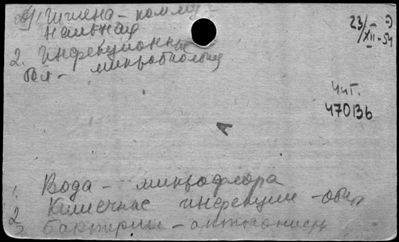 Гигиена - комму-
нальная
2. Инфекционные
бол - микробиология
23/ - Э
/XII - 54
Чит.
470136
А
1. Вода - микрофлора
2 Кишечные инфекции - общ
3 Бактерии - антагонисты